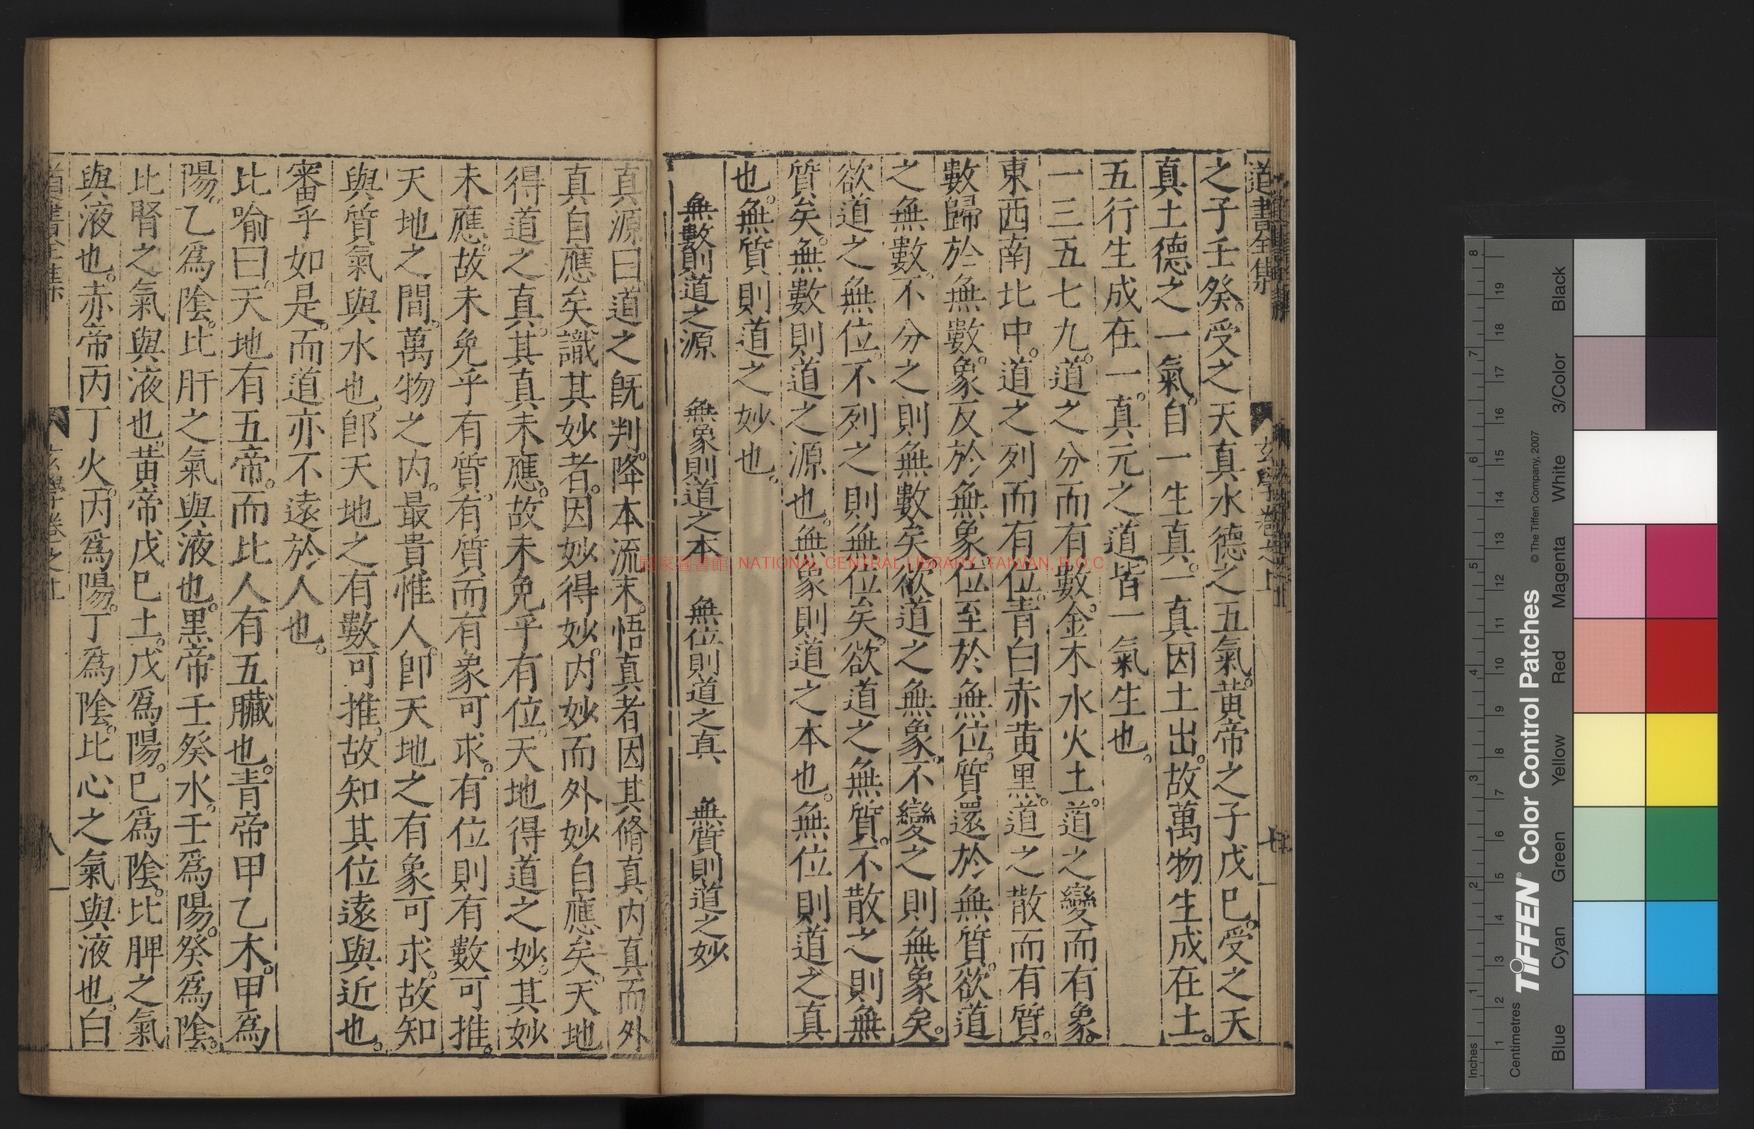 道書全集
之子壬癸。受之天真水德之五氣。黃帝之子戊巳。受之天
真土德之一氣。自一生真。一真因土出。故萬物生成在土。
五行生成在一。真元之道。皆一氣生也。
一三五七九。道之分而有數。金木水火土。道之變而有象。
東西南北中。道之列而有位。青白赤黃黑。道之散而有質。
數歸於無數。象反於無象。位至於無位。質還於無質。欲道
之無數。不分之則無數矣。欲道之無象。不變之則無象矣。
欲道之無位。不列之則無位矣。欲道之無質。不散之則無
質矣。無數則道之源也。無象則道之本也。無位則道之真
也。無質則道之妙也。
無數則道之源 無象則道之本 無位則道之真 無質則道之妙
真源曰道之既判。降本流末。悟真者因其脩真。內真而外
真自應矣。識其妙者。因妙得妙。內妙而外妙自應矣。天地
得道之真。其真未應。故未免乎有位。天地得道之妙。其妙
未應。故未免乎有質。有質而有象可求。有位則有數可推。
天地之間。萬物之內。最貴惟人。即天地之有象可求。故知
與質氣與水也。即天地之有數可推。故知其位遠與近也。
審乎如是。而道亦不遠於人也。
比喻曰。天地有五帝。而比人有五臟也。青帝甲乙木。甲為
陽。乙為陰。比肝之氣與液也。黑帝壬癸水。壬為陽。癸為陰。
比腎之氣與液也。黃帝戊巳土。戊為陽。巳為陰。比脾之氣
與液也。赤帝丙丁火。丙為陽。丁為陰。比心之氣與液也。白
道書全集
八
國家圖書館 NATIONAL CENTRAL LIBRARY, TAIWAN, R.O.C
TIFFEN® Color Control Patches
© The Tiffen Company, 2007
Inches
Centimetres
Blue Cyan Green Yellow Red Magenta White 3/Color Black